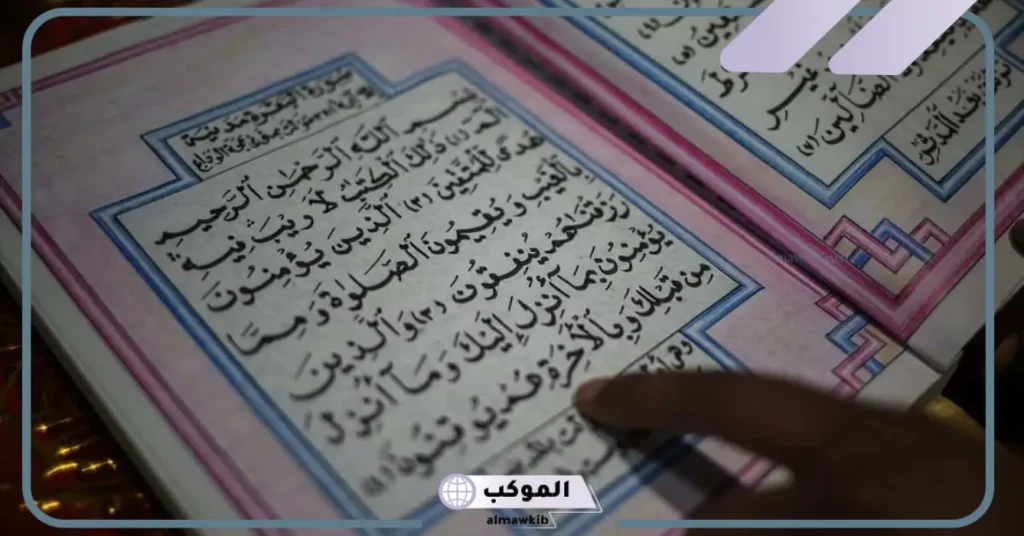 سورة البقرة مدنية
بِسْمِ اللّٰهِ الرَّحْمٰنِ الرَّحِيمِ
الٓمٓ (١) ذٰلِكَ الْكِتٰبُ لَا رَيْبَ فِيهِ
هُدًى لِّلْمُتَّقِينَ (٢) الَّذِينَ يُؤْمِنُونَ
بِالْغَيْبِ وَيُقِيمُونَ الصَّلٰوةَ وَمِمَّا
رَزَقْنٰهُمْ يُنْفِقُونَ (٣) وَالَّذِينَ
يُؤْمِنُونَ بِمَآ أُنْزِلَ إِلَيْكَ وَمَآ أُنْزِلَ
مِنْ قَبْلِكَ وَبِالْأٰخِرَةِ هُمْ يُوقِنُونَ (٤)
الضَّآلِّينَ (٧)
الموكب
almawkib